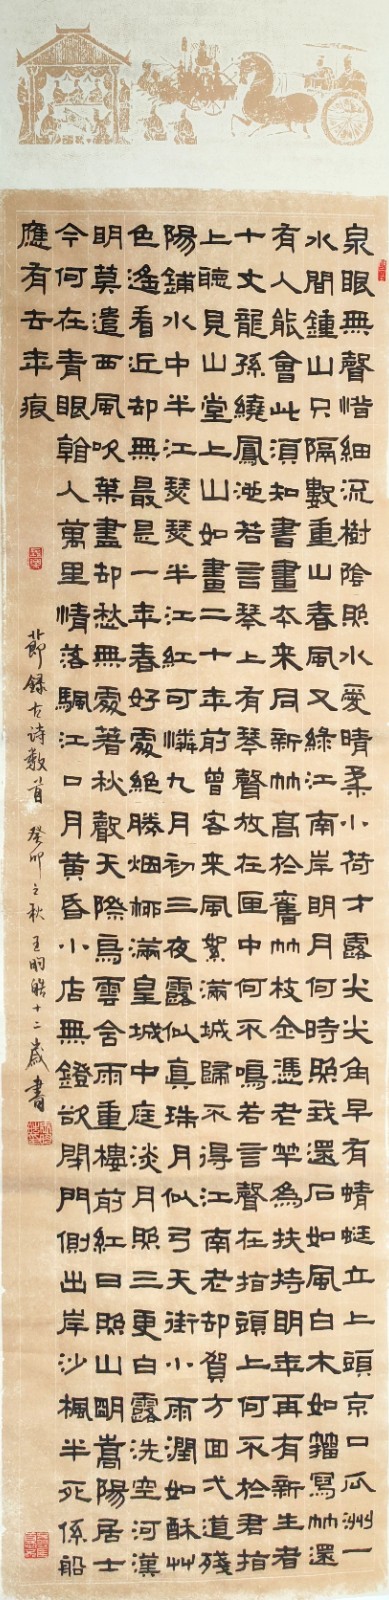 泉眼無聲惜細流樹陰照水愛晴柔小荷才露尖尖角早有蜻蜓立上頭京口瓜洲一
水間鍾山只隔數重山春風又綠江南岸明月何時照我還石如風白木如籀寫竹還
有人能會此須知書畫本來同新竹高於舊竹枝全憑老竿為扶持明年再有新生者
十丈龍孫繞鳳池若言琴上有琴聲放在匣中何不鳴若言聲在指頭上何不於君指
上聽見山堂上山如畫二十年前曾客來風絮滿城歸不得江南老却賀方回弌道殘
陽鋪水中半江瑟瑟半江紅可憐九月初三夜露似真珠月似弓天街小雨潤如酥艸
色遙看近却無最是一年春好處絕勝烟柳滿皇城中庭淡月照三更白露洗空河漢
明莫遣西風吹葉盡却愁無處著秋聲天際烏雲含雨重樓前紅日照山明嵩陽居士
今何在青眼看人萬里情落颿江口月黃昏小店無鐙欲閉門側出岸沙楓半死係船
應有去年痕
節錄古詩數首 癸卯之秋 王昀皓十二歲書